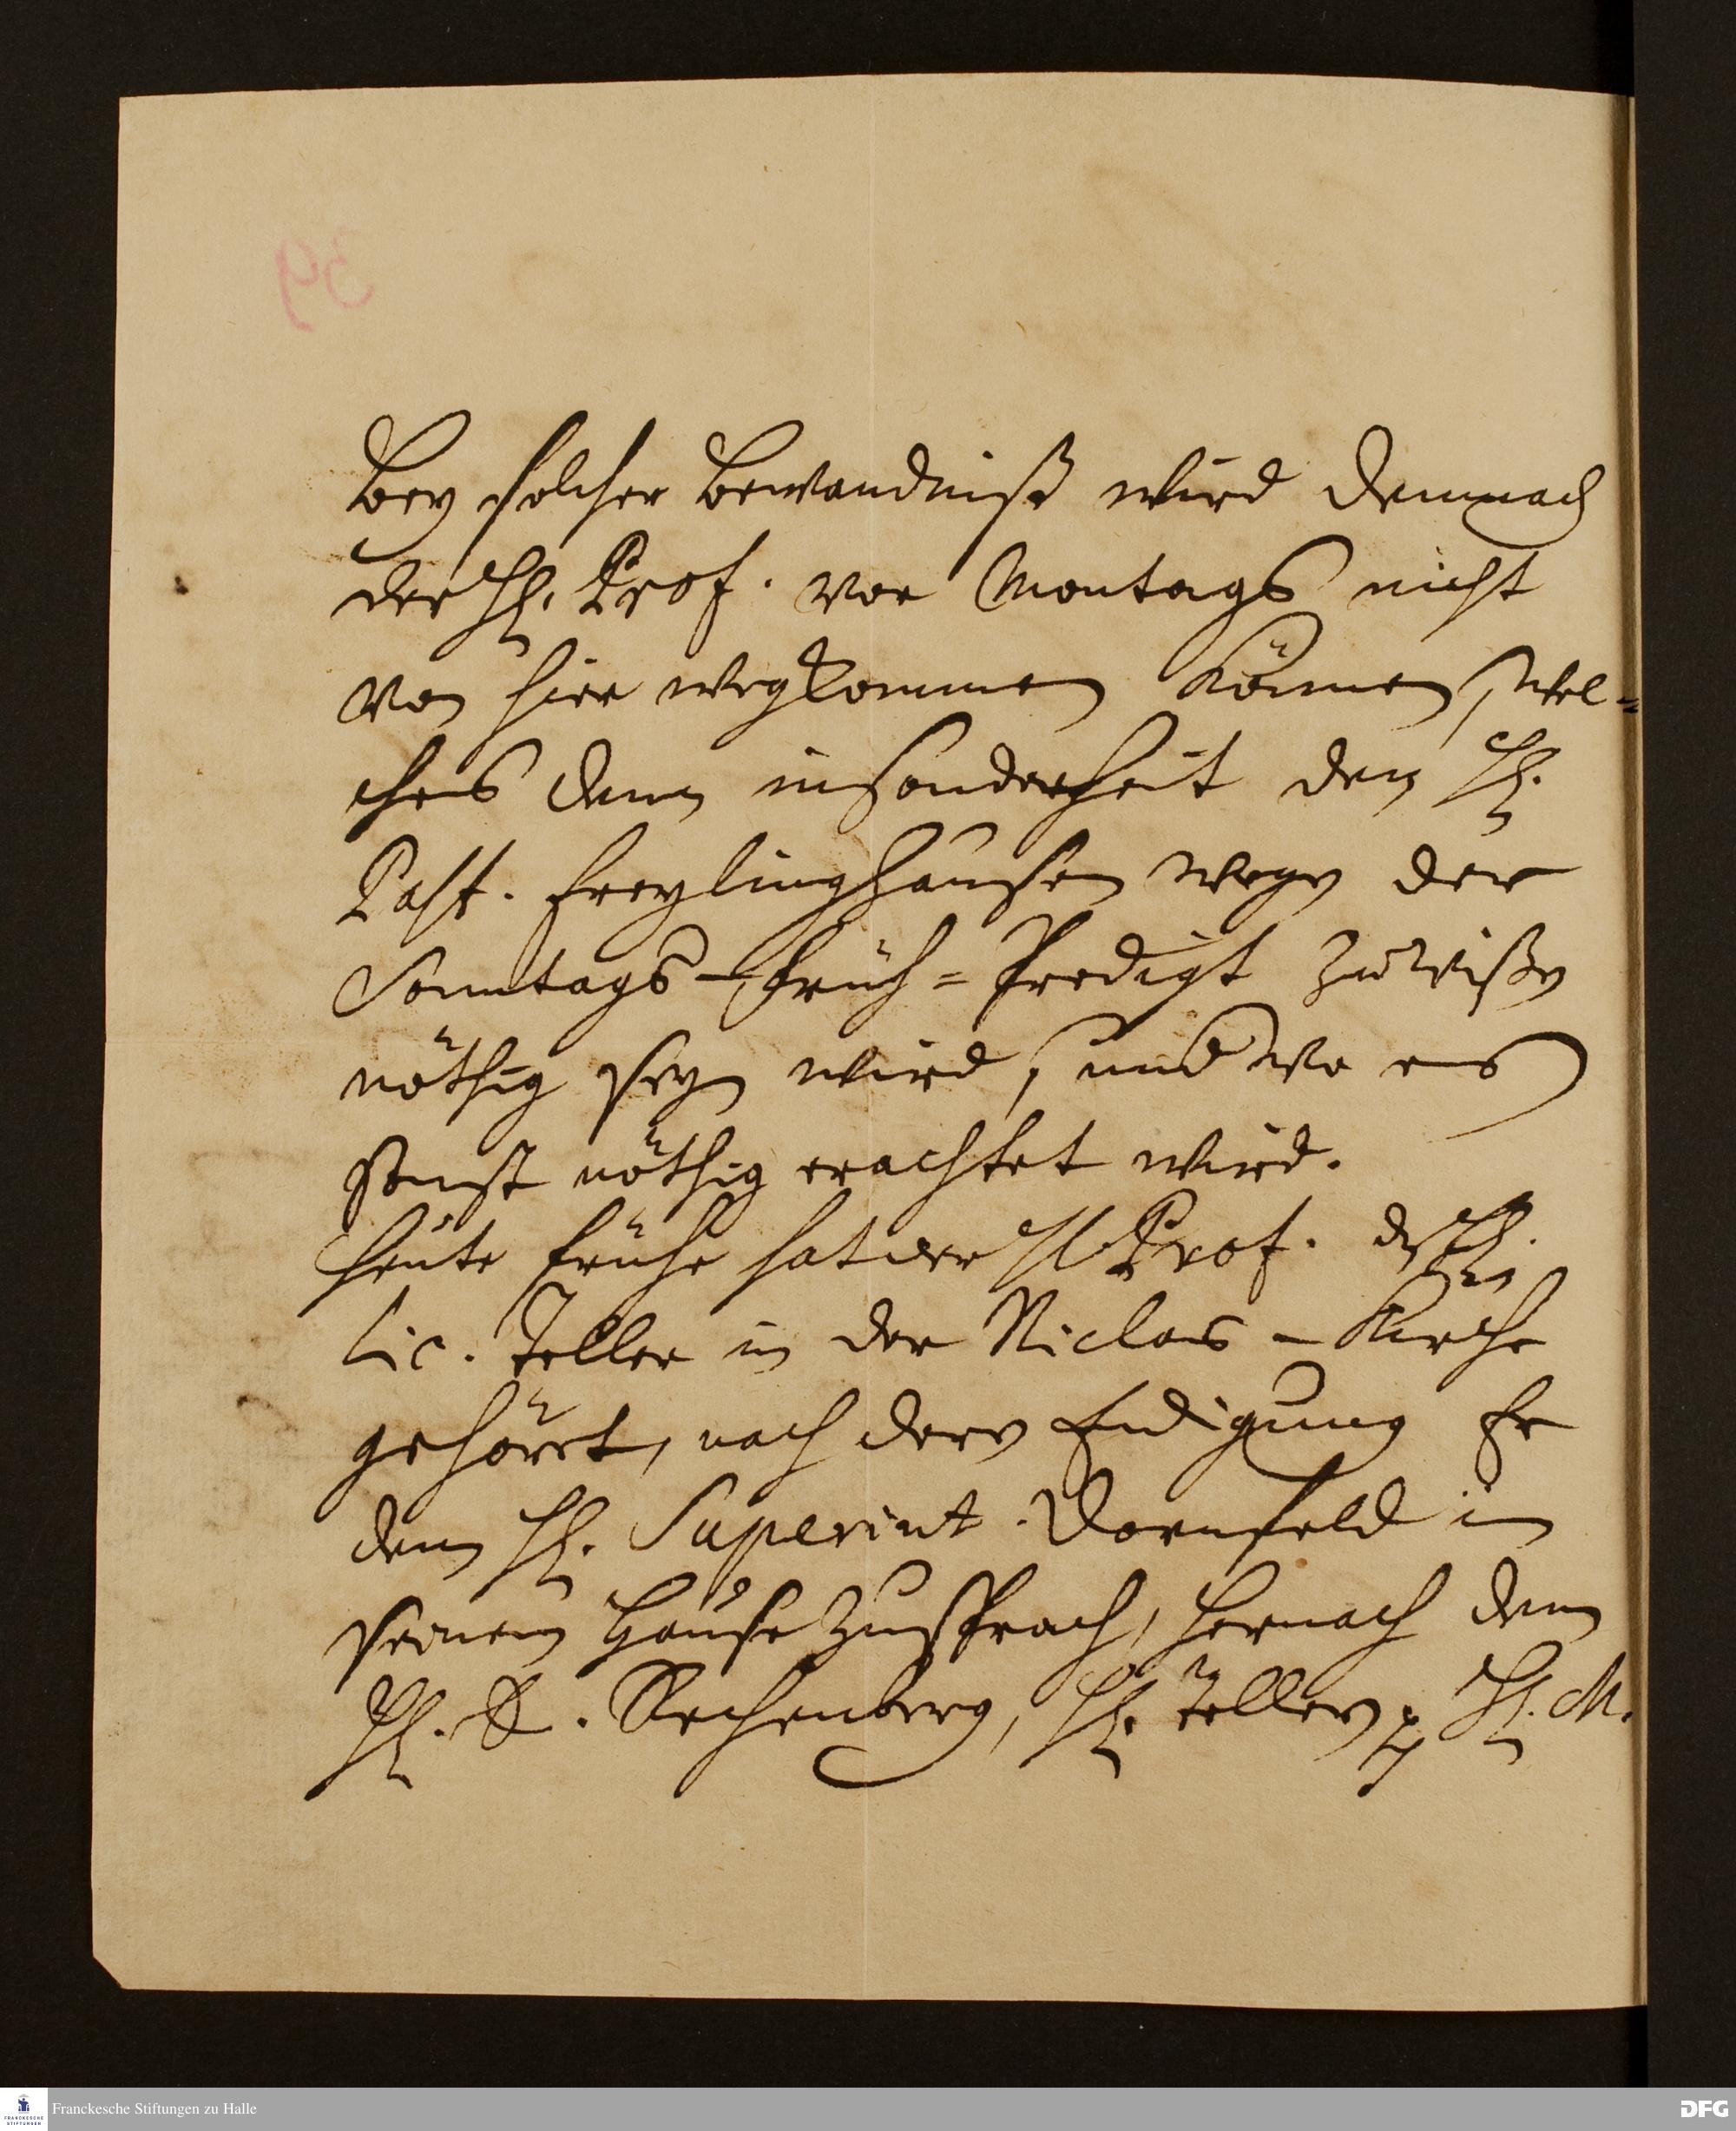 39
Bey solcher Bewandniß wird demnach
der H. Prof. vor Montags nicht
von hier wegkommen können, wel=
ches denn insonderheit dem H.
Past. Freylinghausen wegen der
Sonntags-Früh=Predigt zu wißen
nöthig seyn wird, und wo es
sonst nöthig erachtet wird.
Heüte frühe hat der H. Prof. den H.
Lic. Teller in der Niclas-Kirche
gehöret, nach deren Endigung Er
dem H. Superint. Dornfeld in
seinem Hause zusprach, hernach dem
H. D. Rechenberg, H. Tellern, H. M.
Franckesche Stiftungen zu Halle
DFG